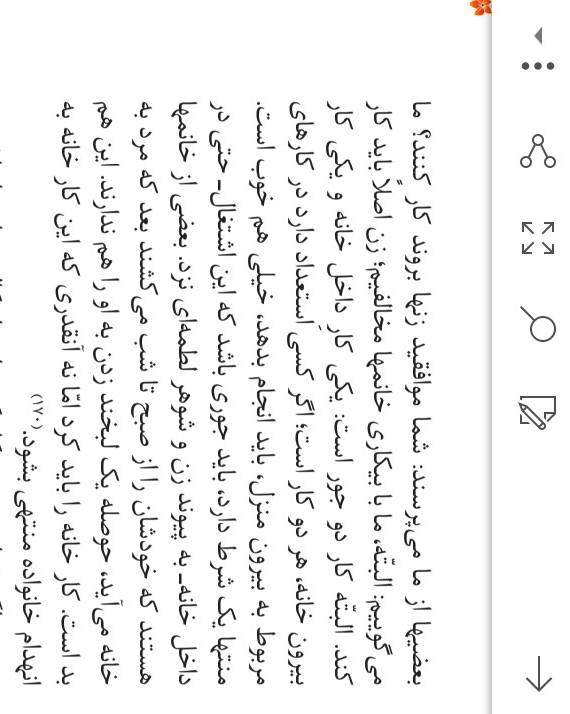 بعضیها از ما می‌پرسند: شما موافقید زنها بروند کار کنند؟ ما
می‌گوییم: البتّه، ما با بیکاری خانمها مخالفیم؛ زن اصلاً باید کار
کند. البتّه کار دو جور است: یکی کار داخل خانه و یکی کار
بیرون خانه، هر دو کار است؛ اگر کسی استعداد دارد در کارهای
مربوط به بیرون منزل، باید انجام بدهد، خیلی هم خوب است.
منتها یک شرط دارد، باید جوری باشد که این اشتغال -حتی در
داخل خانه- به پیوند زن و شوهر لطمه‌ای نزد. بعضی از خانمها
هستند که خودشان را از صبح تا شب می کشند بعد که مرد به
خانه می‌آید، حوصله یک لبخند زدن به او را هم ندارند. این هم
بد است. کار خانه را باید کرد امّا نه آنقدری که این کار خانه به
انهدام خانواده منتهی بشود. (۱۷۰)